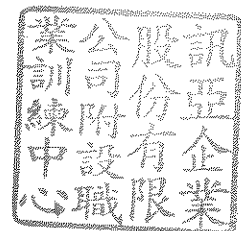 訊亞企業
股份有限
公司附設職
業訓練中心